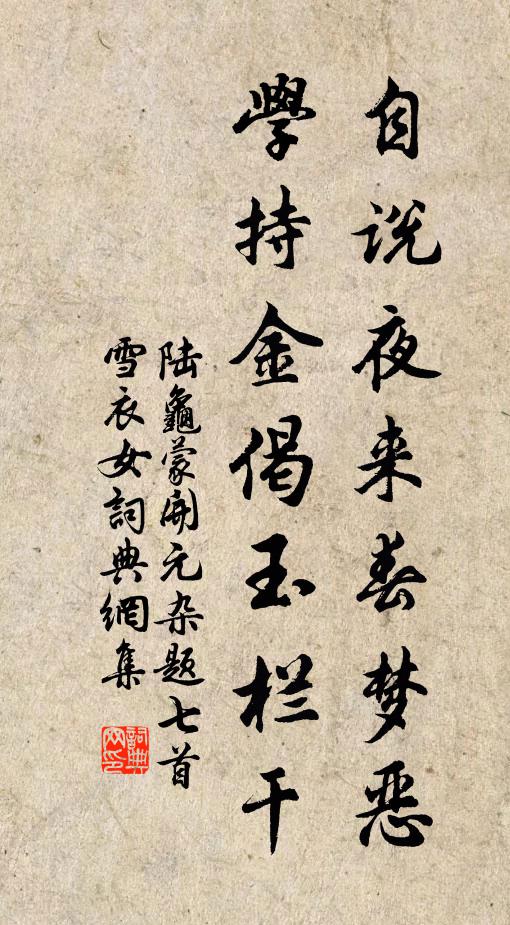 自说夜来春梦恶
學持金偈玉栏干
陆龜蒙開元杂题七首
雪衣女詞典網集
詞典
网印